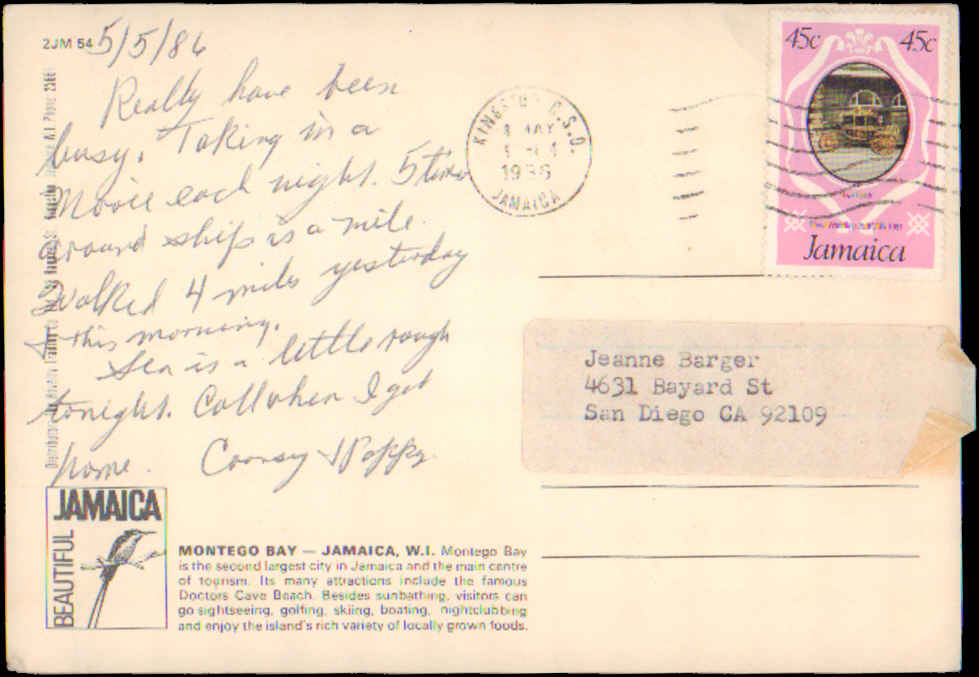 2JM 54
5/5/86
Really have been
busy. Taking in a
movie each night. 5 times
around ship is a mile.
Walked 4 miles yesterday
+ this morning.
Sea is a little rough
tonight. Call when I get
home.
KINGSTON C.S.O.
MAY
1986
JAMAICA
45c 45c
Jamaica
Jeanne Barger
4631 Bayard St
San Diego CA 92109
BEAUTIFUL
JAMAICA
MONTEGO BAY — JAMAICA, W.I. Montego Bay
is the second largest city in Jamaica and the main centre
of tourism. Its many attractions include the famous
Doctors Cave Beach. Besides sunbathing, visitors can
go sightseeing, golfing, skiing, boating, nightclubbing
and enjoy the island's rich variety of locally grown foods.